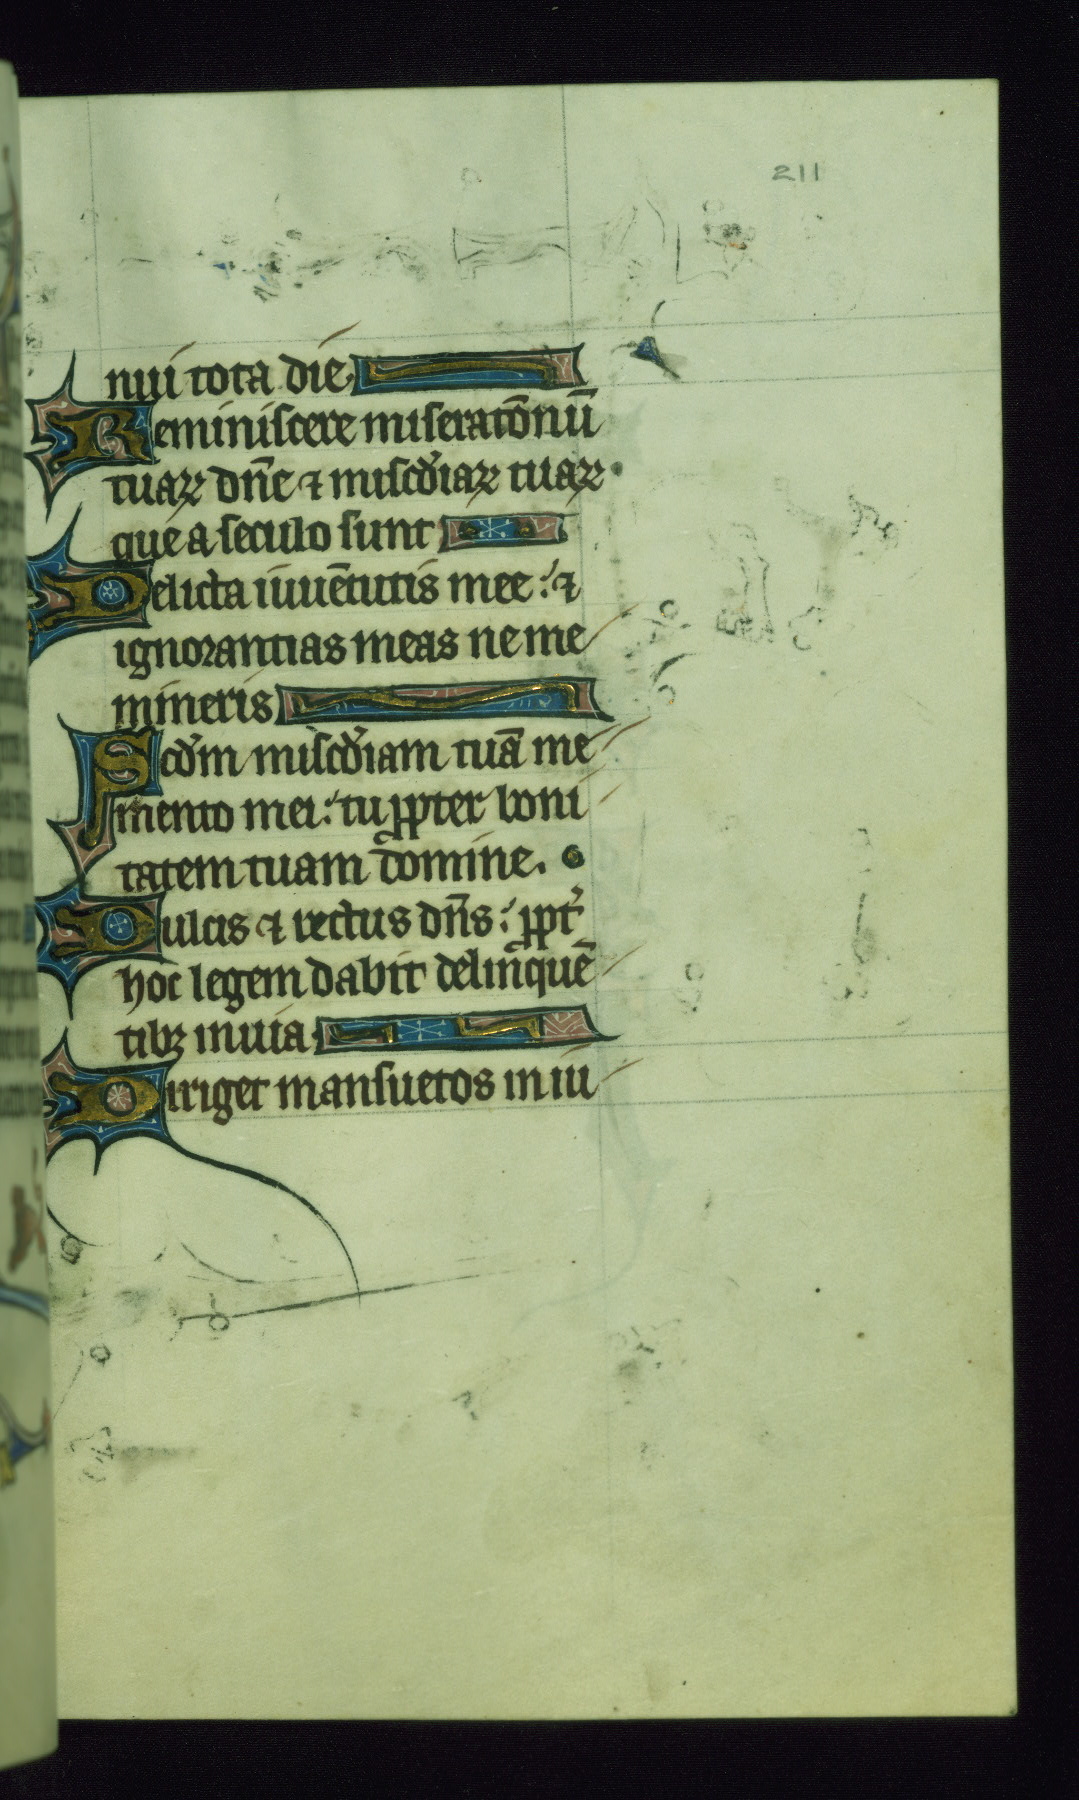 211
nui tota die
Reminiscere miseratōnū
tuaꝝ dn̄e ⁊ miscd̓iaꝝ tuaꝝ.
que a seculo sunt
Delicta iuuētutis mee: ⁊
ignorantias meas ne me
mineris
Scd̓m miscd̓iam tuā me
mento mei: tu ꝓpter boni
tatem tuam domine.
Dulcis ⁊ rectus dn̄s: ꝓpt̓
hoc legem dabit delinquē
tibꝫ in uia
Diriget mansuetos in iu